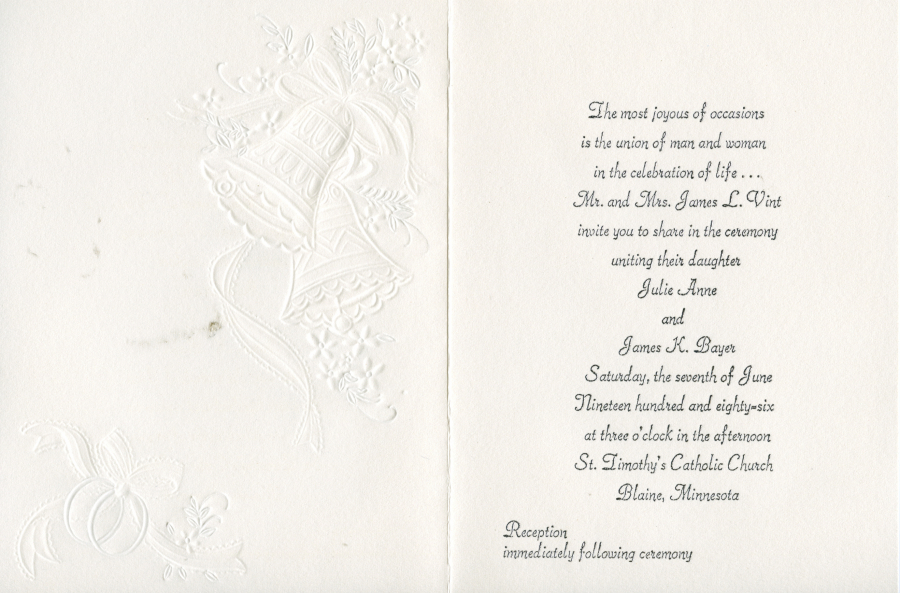 The most joyous of occasions
is the union of man and woman
in the celebration of life . . .
Mr. and Mrs. James L. Vint
invite you to share in the ceremony
uniting their daughter
Julie Anne
and
James K. Bayer
Saturday, the seventh of June
Nineteen hundred and eighty-six
at three o'clock in the afternoon
St. Timothy's Catholic Church
Blaine, Minnesota
Reception
immediately following ceremony